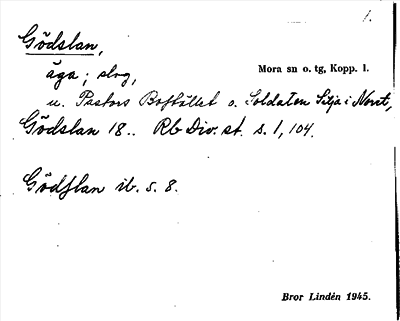 1.
Gödslan,
äga; slog,
Mora sn o. tg, Kopp. l.
u. Pastors Bostället o. Soldaten Silja i Noret,
Gödslan 18.. Rb Div. st. s. 1, 104.
Gödslan ib. s. 8.
Bror Lindén 1945.